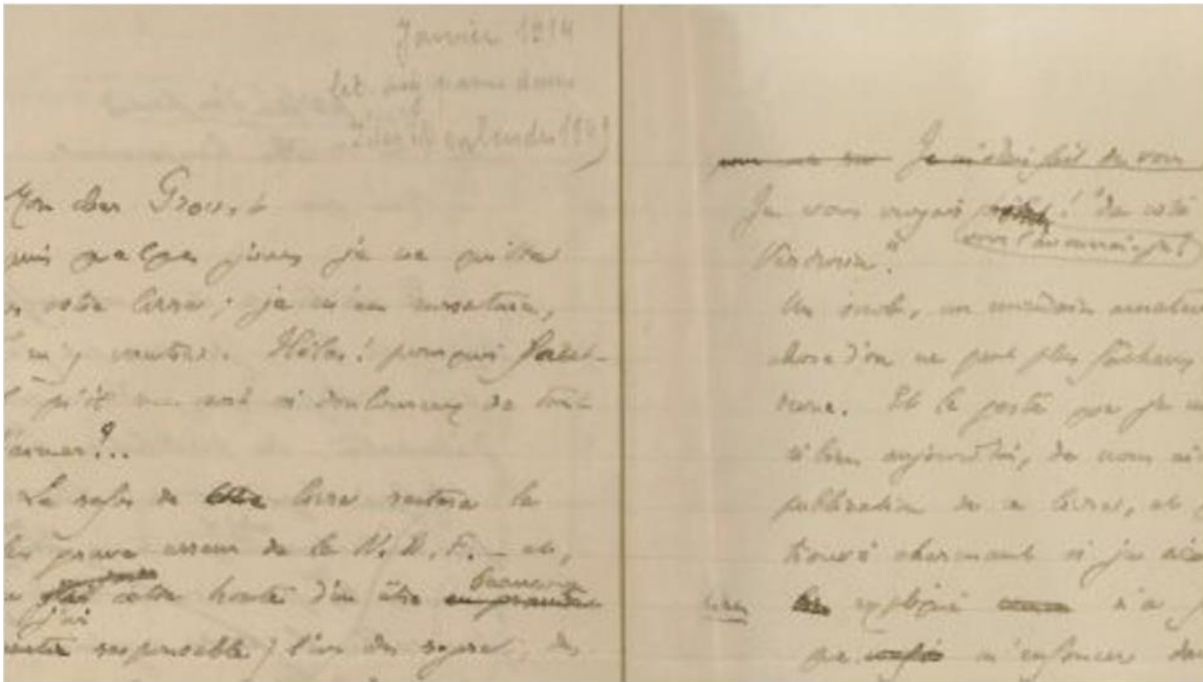 Janvier 1914
Mon cher Proust
quelques jours je ne quitte
votre livre ; je m'en sursature,
m'y vautre. Hélas ! pourquoi faut-
qu'il me soit si douloureux de tant
l'aimer ?..
Le refus de ce livre restera la
grave erreur de la N.R.F. — et,
j'ai cette honte d'en être beaucoup
responsable) l'un des regrets, des
Je m'étais fait de vous
Je vous croyais "du côté
vous l'avouerai-je ?
Verdurin".
Un snob, un mondain amateur
chose d'on ne peut plus fâcheux
revue. Et le geste que je
si bien aujourd'hui, de nous
publication de ce livre, et
trouvé charmant si je
expliqué n'a
que m'enfoncer dans